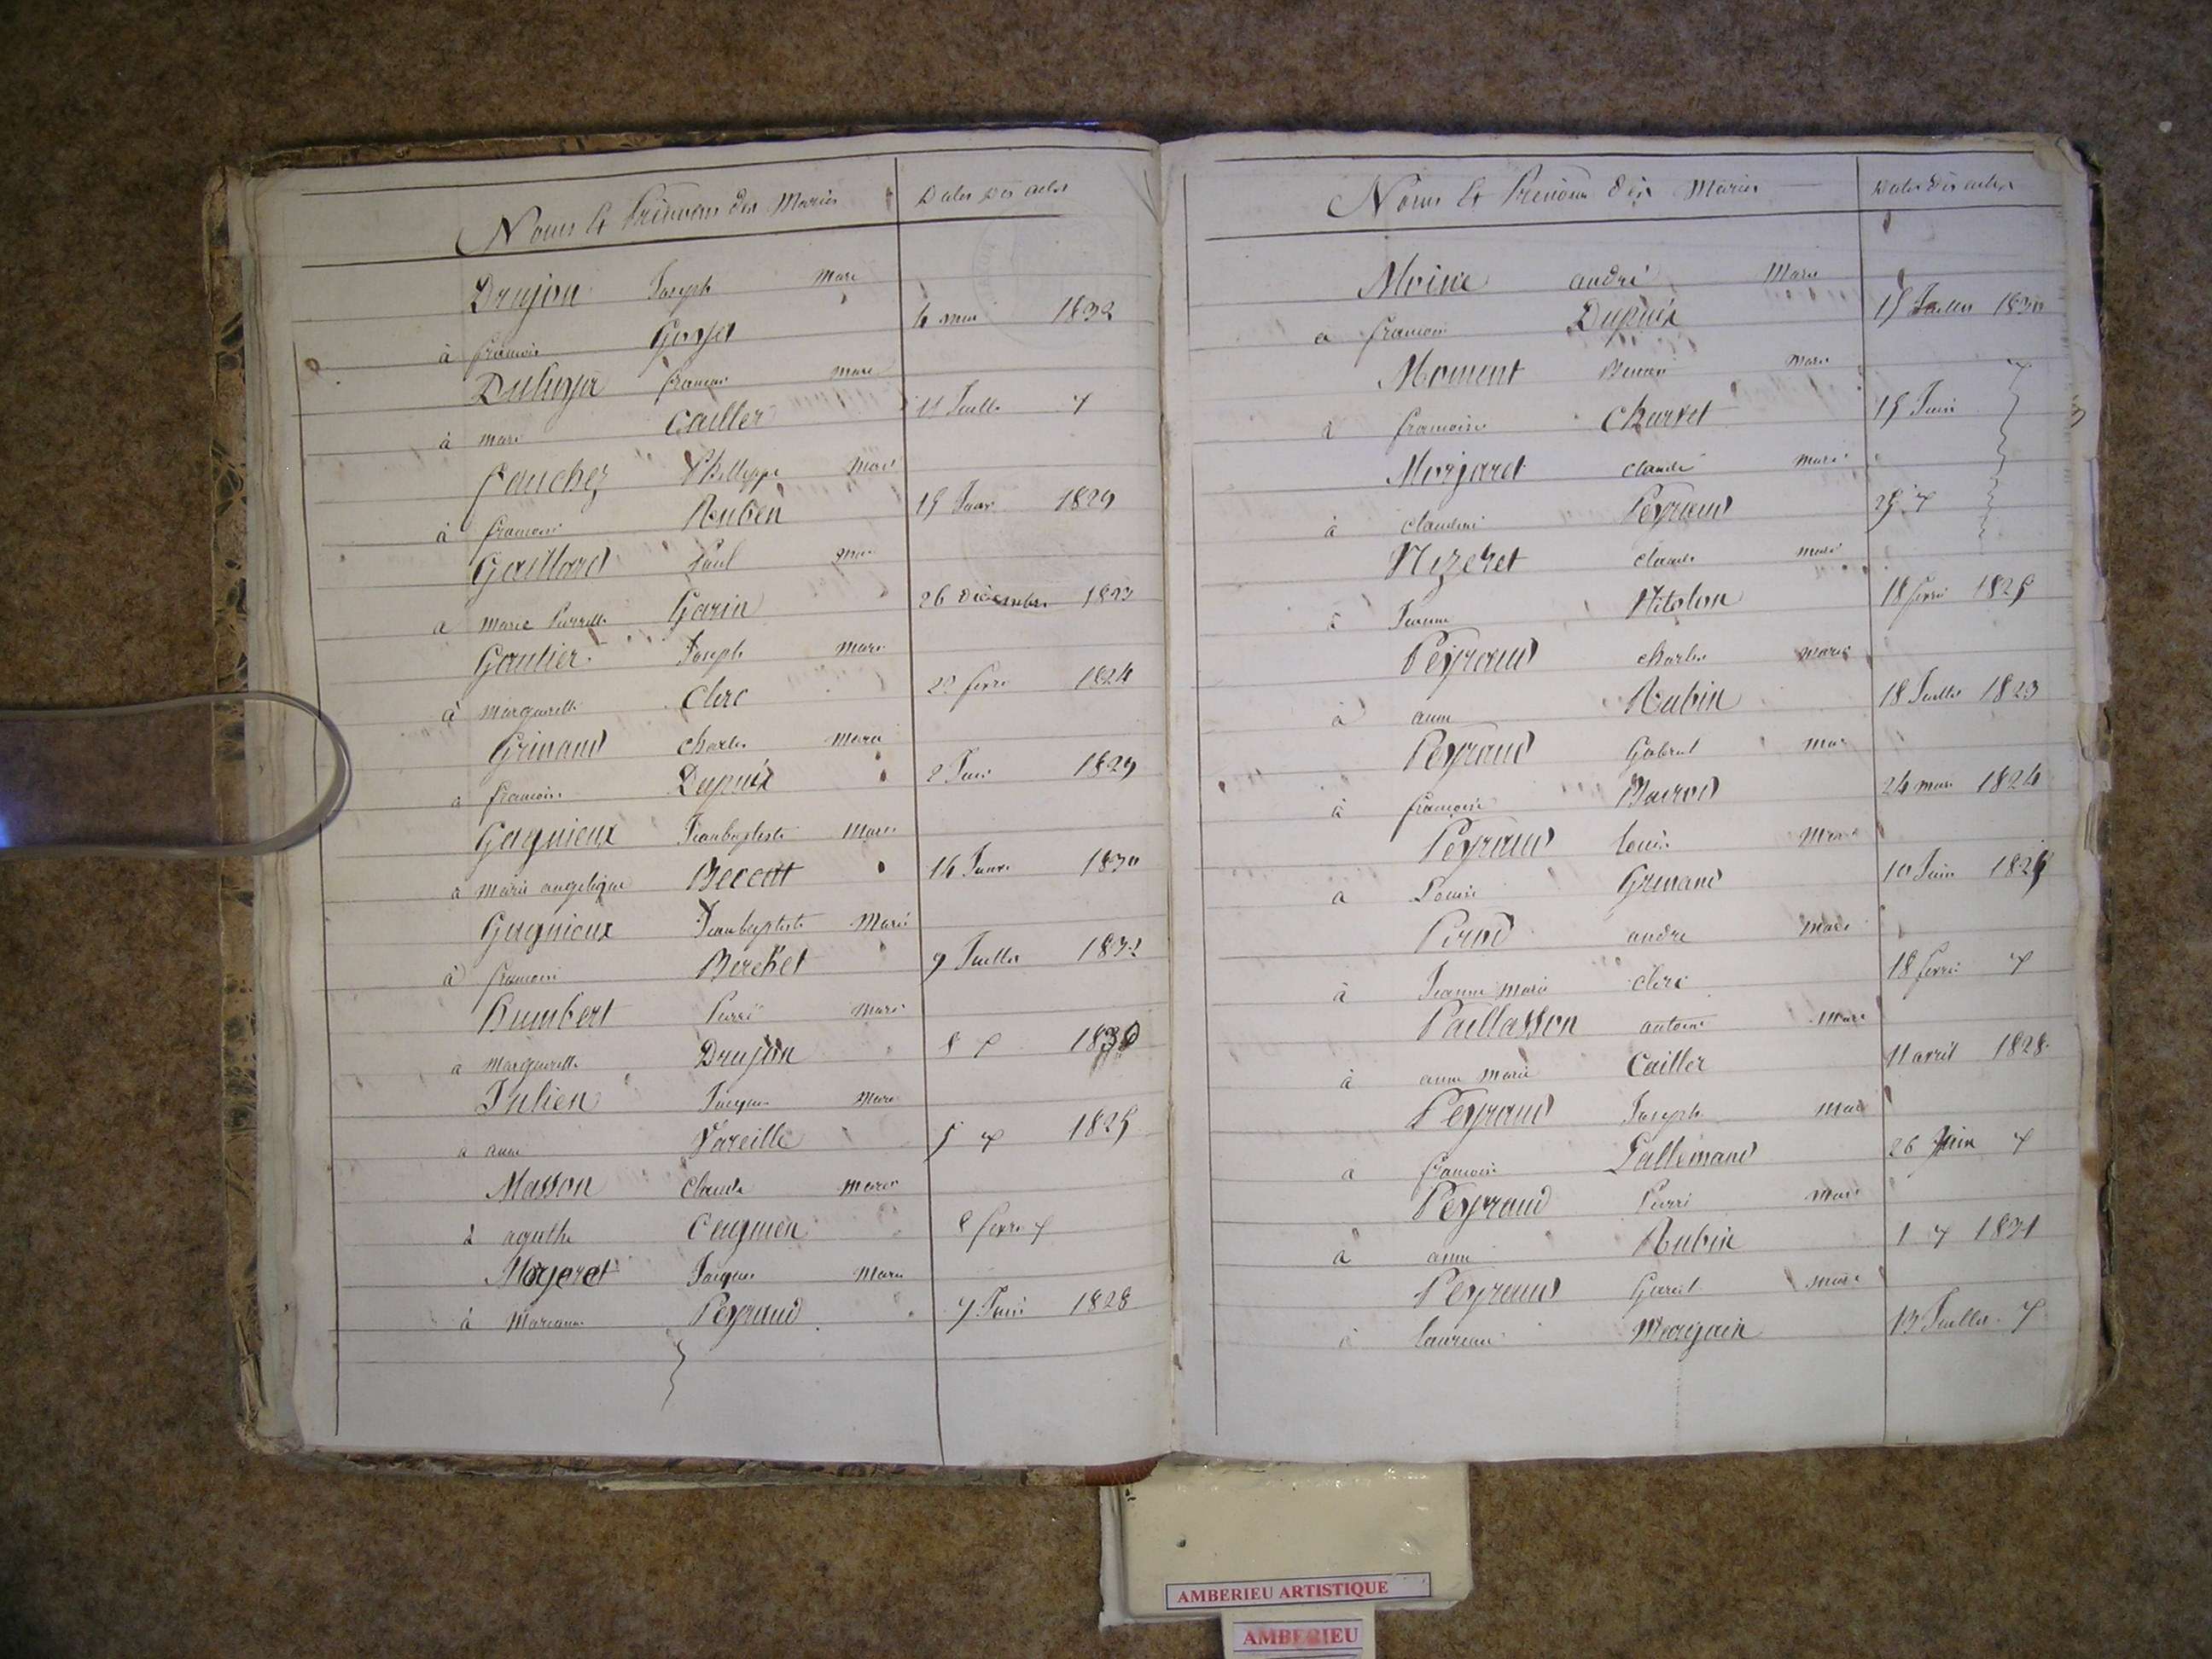 Noms et Prénoms des Mariés Dates des actes
Drujon Joseph Marié
à francoise Goyet 4 mai 1832
francois marié
à marie Cailler 11 Juillet
fauchez Philippe Marié
à francoise Rubin 15 Janv. 1829
Gaillard Paul marié
a marie Pierrette Garin 26 Décembre 1823
Gautier Joseph marié
à margueritte Clerc 1824
Grinand charles marié
a francoise Dupuix 2 Juin 1829
Gagnieux Jeanbaptiste Marié
a marie angelique 14 Janv. 1830
Gagnieux Jeanbaptiste Marié
à francoise Berchet 9 Juillet 1832
Humbert Pierre marié
a Margueritte Drujon 8 1830
Julien Jacques Marié
a anne Vareille 5 1825
Masson claude marié
à agathe 8 fevre
Jacques Marié
à Marianne Peyraud 7 Juin 1828
Noms et Prénoms des Mariés Dates des actes
Moine andré Marié
a francoise Dupuix 15 Juillet 1830
Moment marié
à francoise Charvet 15 Juin
Morjaret claude marié
à claudine Peyraud
Nizeret claude marié
à Jeanne Nitolon 18 fevre 1825
Peyraud charles marié
à anne Rubin 18 Juillet 1823
Peyraud Gabriel marié
à francoise 24 mars 1824
Peyraud louis Marié
a Louise Grinand 10 Juin
Perod andre Marié
à Jeanne Marie clerc 18 fevre
Paillasson antoine Marié
à anne marie Cailler 11 avril 1828
Peyraud Joseph Marié
a francoise Lallemand 26 Juin
Peyraud Pierre Marié
a anne Rubin 1 1831
Peyraud marié
à 13 Juillet
AMBERIEU ARTISTIQUE
AMBERIEU